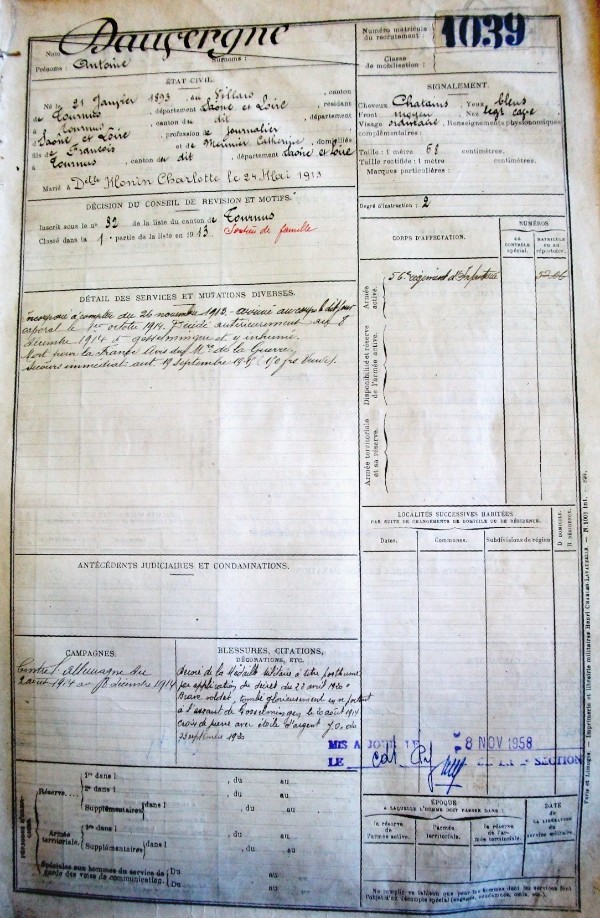 Nom Dauvergne
Prénoms : Antoine Surnoms :
Numéro matricule du recrutement : 1039
Classe de mobilisation :
ÉTAT CIVIL.
Né le 21 Janvier 1893, au Villars, canton
de Tournus, département Saône et Loire, résidant
à Tournus, canton de dit, département
Saône et Loire, profession de journalier
fils de François et de Catherine, domiciliés
à Tournus, canton du dit, département Saône et Loire
Marié à Delle Monin Charlotte le 24 Mai 1913
SIGNALEMENT.
Cheveux Chatains Yeux bleus
Front moyen Nez
Visage ordinaire Renseignements physionomiques
complémentaires :
Taille : 1 mètre 68 centimètres.
Taille rectifiée : 1 mètre centimètres.
Marques particulières :
DÉCISION DU CONSEIL DE REVISION ET MOTIFS.
Inscrit sous le n° 32 de la liste du canton de Tournus
Classé dans la 1e partie de la liste en 1913 Soutien de famille
Degré d'instruction : 2
CORPS D'AFFECTATION.
NUMÉROS
au contrôle spécial.
matricule ou au répertoire.
Armée active.
56e régiment d'Infanterie
Disponibilité et réserve de l'armée active.
Armée territoriale et sa réserve.
DÉTAIL DES SERVICES ET MUTATIONS DIVERSES.
Incorporé à compter du 26 novembre 1913 arrivé au corps le dit jour
caporal le 1er octobre 1914. Décédé antérieurement au 8
décembre 1914 à Gosselmingen et y inhumé.
Mort pour la France Avis du Mre de la Guerre.
Secours immédiat aut. 19 septembre
LOCALITÉS SUCCESSIVES HABITÉES
PAR SUITE DE CHANGEMENTS DE DOMICILE OU DE RÉSIDENCE.
Dates. Communes. Subdivisions de région
D DOMICILE. R RÉSIDENCE.
ANTÉCÉDENTS JUDICIAIRES ET CONDAMNATIONS.
CAMPAGNES.
Contre l'allemagne du
2 août 1914 au 8 décembre 1914
BLESSURES, CITATIONS,
DÉCORATIONS, ETC.
Décoré de la Médaille Militaire à titre posthume
par application du décret du 27 avril 1920
Brave soldat, tombé glorieusement en se portant
à l'assaut de Gosselmingen le 20 août 1914
croix de guerre avec étoile d'argent J.O. du
23 septembre 1920
MIS A JOUR LE 8 NOV 1958
LE SECTION
Réserve
1re dans l , du au
2e dans l , du au
Supplémentaires dans l , du au
Armée territoriale.
1re dans l , du au
Supplémentaires dans l , du au
Spéciales aux hommes du service de garde des voies de communication.
Du au
Du au
ÉPOQUE
A LAQUELLE L'HOMME DOIT PASSER DANS :
la réserve de l'armée active.
l'armée territoriale.
la réserve de l'armée territoriale.
DATE de la LIBÉRATION du service militaire.
Paris et Limoges. — Imprimerie et librairie militaires Henri CHARLES-LAVAUZELLE.